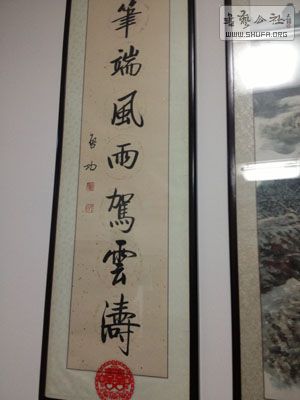 筆端風雨駕雲濤
啓功
书艺公社
WWW.SHUFA.ORG